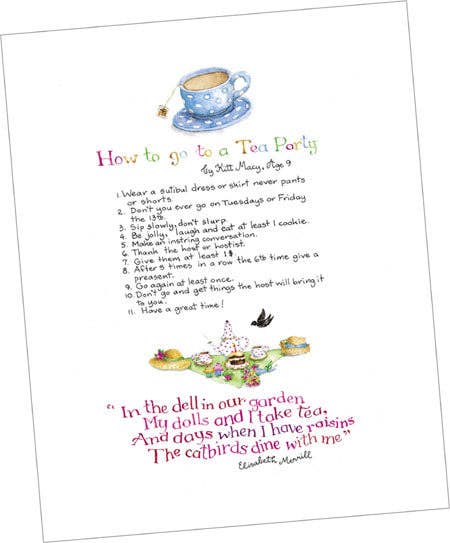 How to go to a Tea Party
by Kitt Macy, Age 9
1. Wear a sutibul dress or skirt never pants
or shorts.
2. Don't you ever go on Tuesdays or Friday
the 13th.
3. Sip slowly, don't slurp.
4. Be jolly, laugh and eat at least 1 cookie.
5. Make an instring conversation.
6. Thank the host or hostist.
7. Give them at least 1$.
8. After 5 times in a row the 6th time give a
preasent.
9. Go again at least once.
10. Don't go and get things the host will bring it
to you.
11. Have a great time!
"In the dell in our garden
My dolls and I take tea,
And days when I have raisins
The catbirds dine with me"
Elisabeth Merrill